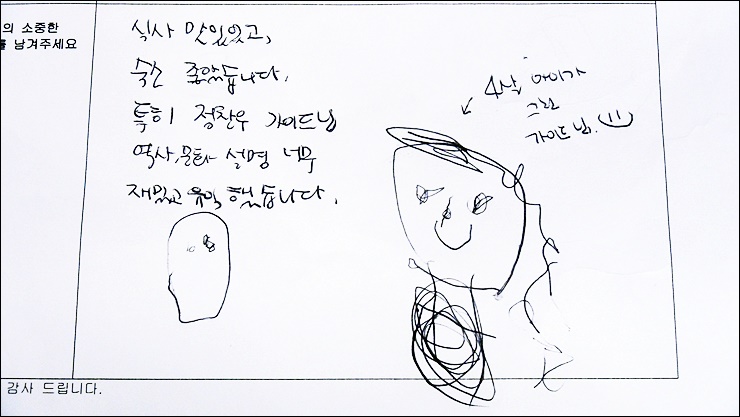 의 소중한
를 남겨주세요
식사 맛있었고,
숙소 좋았습니다.
특히 정찬우 가이드님
역사, 문화 설명 너무
재밌고 유익했습니다.
4살 아이가
그린
가이드님.
감사 드립니다.